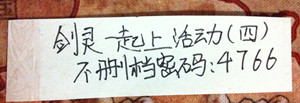 剑灵一起上活动(四)
不删档密码:4766